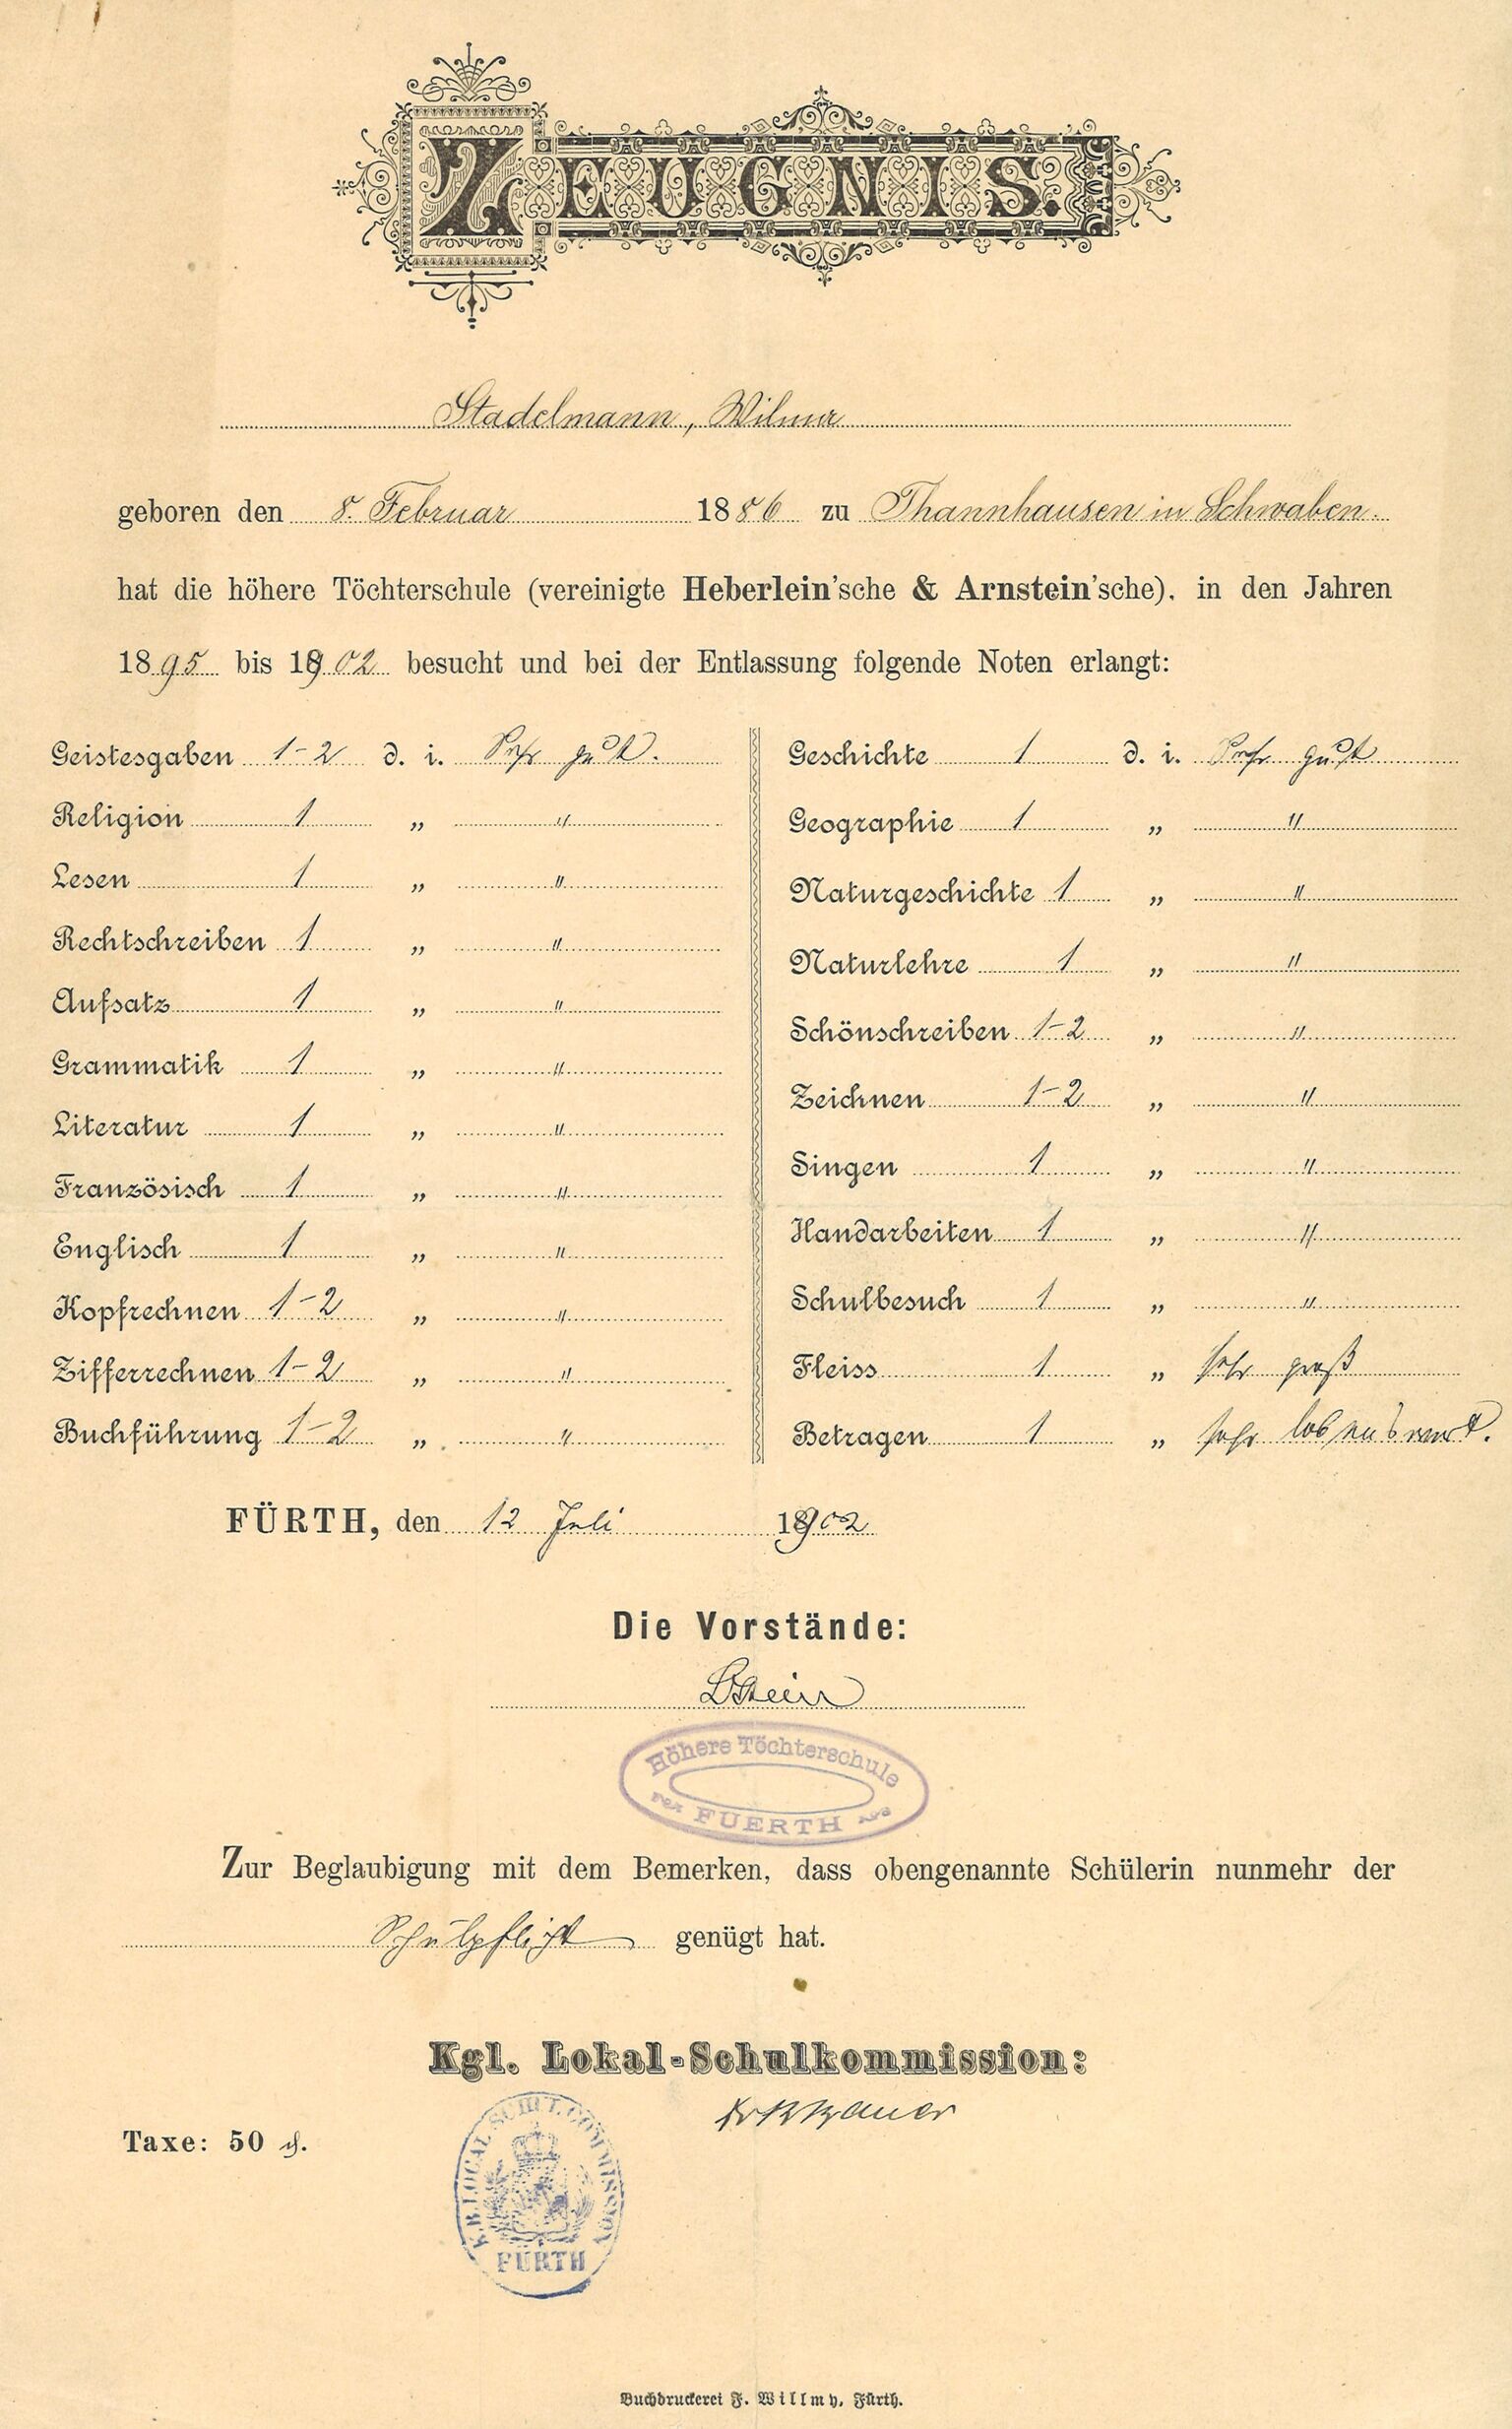 ZEUGNIS.
Stadelmann, Wilma
geboren den 8. Februar 1886 zu Thannhausen in Schwaben.
hat die höhere Töchterschule (vereinigte Heberlein'sche & Arnstein'sche), in den Jahren
1895 bis 1902 besucht und bei der Entlassung folgende Noten erlangt:
Geistesgaben 1-2 d. i. Sehr gut.
Religion 1 „ "
Lesen 1 „ "
Rechtschreiben 1 „ "
Aufsatz 1 „ "
Grammatik 1 „ "
Literatur 1 „ "
Französisch 1 „ "
Englisch 1 „ "
Kopfrechnen 1-2 „ "
Zifferrechnen 1-2 „ "
Buchführung 1-2 „ "
Geschichte 1 d. i. Sehr gut
Geographie 1 „ "
Naturgeschichte 1 „ "
Naturlehre 1 „ "
Schönschreiben 1-2 „ "
Zeichnen 1-2 „ "
Singen 1 „ "
Handarbeiten 1 „ "
Schulbesuch 1 „ "
Fleiss 1 „ sehr groß
Betragen 1 „ sehr lobenswert.
FÜRTH, den 12 Juli 1902
Die Vorstände:
Höhere Töchterschule
FUERTH
Zur Beglaubigung mit dem Bemerken, dass obengenannte Schülerin nunmehr der
Schulpflicht genügt hat.
Kgl. Lokal-Schulkommission:
Taxe: 50 ₰.
K. B. LOCAL-SCHUL-COMMISSION
FÜRTH
Buchdruckerei F. Willmy, Fürth.